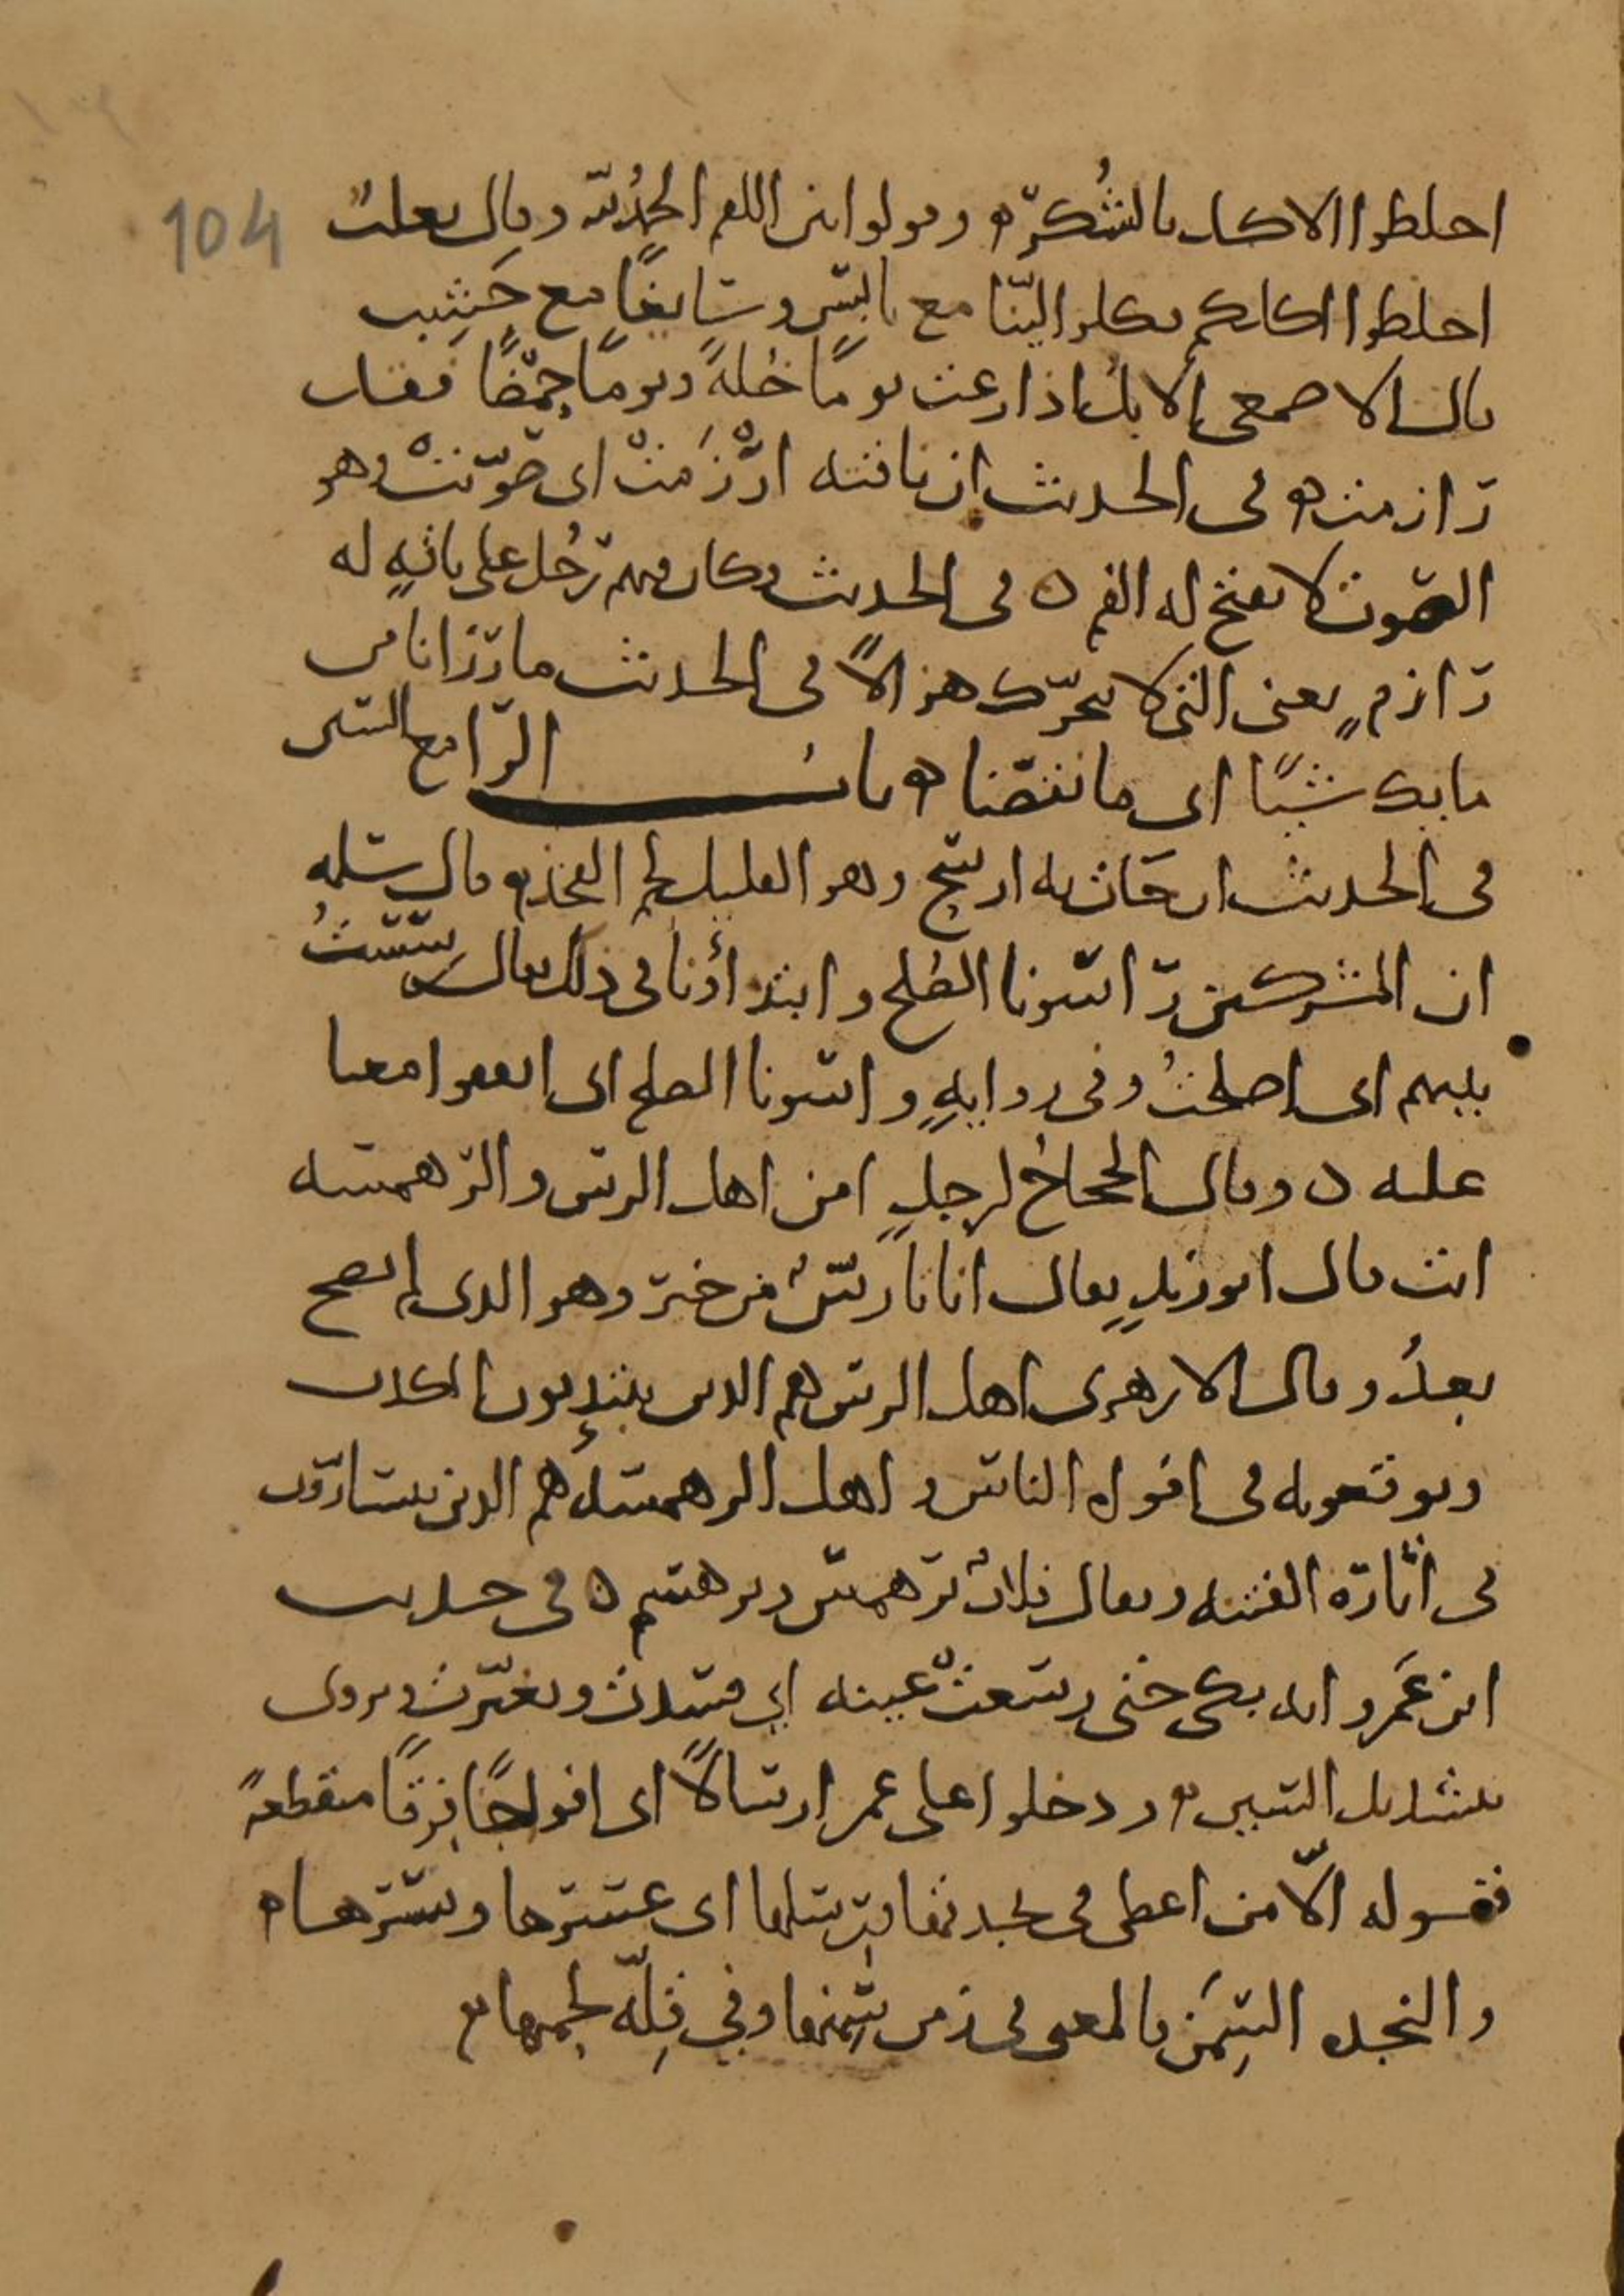 104
اخلطوا الاكل بالشكر ه وقولوا بين اللقم الحمد لله وقال ثعلب
اخلطوا اكلكم فكلوا لينا مع يابس وسايغا مع جشيب
قال الاصمعي الابل اذا رعت يوما خلة ويوما حمضا فقد
رازمت ه في الحديث ان ناقته ارزمت اى صوتت وهو
الصوت لا يفتح له الفم ه فى الحديث وكان فيهم رجل على ناقة له
رازم يعنى التى لا تتحرك هزالا فى الحديث ما رزانا من
مايك شيئا اى ما نقصنا ه باب الرا مع السين
فى الحديث ان جات به ارسح وهو القليل لحم الفخذ ه قال سلمه
ان المشركين راسونا الصلح وابتداؤنا فى ذلك يقال رسست
بينهم اى اصلحت وفى رواية واسونا الصلح اى اتفقوا معنا
عليه ه وقال الحجاج لرجل امن اهل الرس والرهمسه
انت قال ابو زيد يقال اتانا رس من خبر وهو الذى لم يصح
بعد وقال الازهرى اهل الرس هم الذين يبتديون الكذب
ويوقعونه فى افواه الناس واهل الرهمسة هم الذين يتسارون
فى اثارة الفتنه ويقال فلان يرهمس ويرهسم ه فى حديث
ابن عمرو انه بكى حتى رسعت عينه اي فسدت وتغيرت ويروى
بتشديد السين ه ودخلوا على عمر ارسالا اى افواجا فرقا منقطعة
فقوله الا من اعطى فى نجدتها ورسلها اى عسرها ويسرها ه
والنجده السمن فالمعنى فى زمن سمنها وفي قلة لحمها